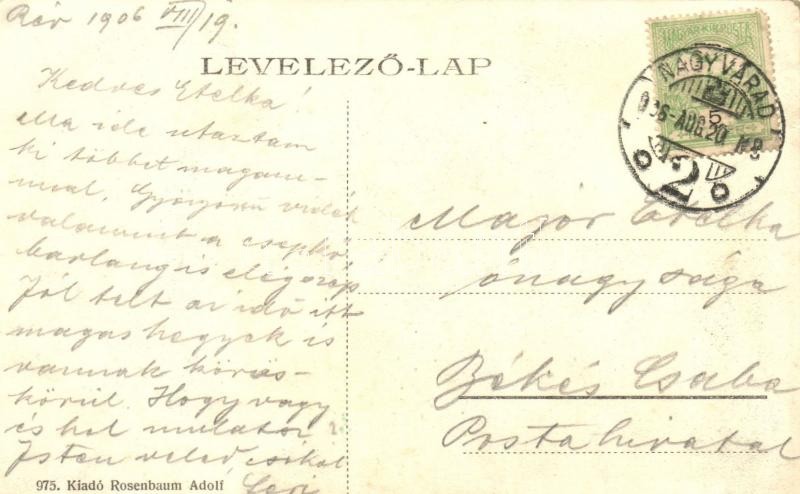 Rév 1906 VIII/19.
LEVELEZŐ-LAP
MAGYAR KIR. POSTA
NAGYVÁRAD
906 AUG. 20
2
5
Kedves Etelka!
Ma ide utaztam
ki többet magam-
mal, Gyönyörű vidék
valamint a csepkő
barlang is elég szép
Jól telt az idő itt
magas hegyek is
vannak körös-
körül. Hogy vagy
és hol mulatoz?
Isten veled, csókol
Major Etelka
őnagysága
Békés Csaba
Postahivatal
975. Kiadó Rosenbaum Adolf